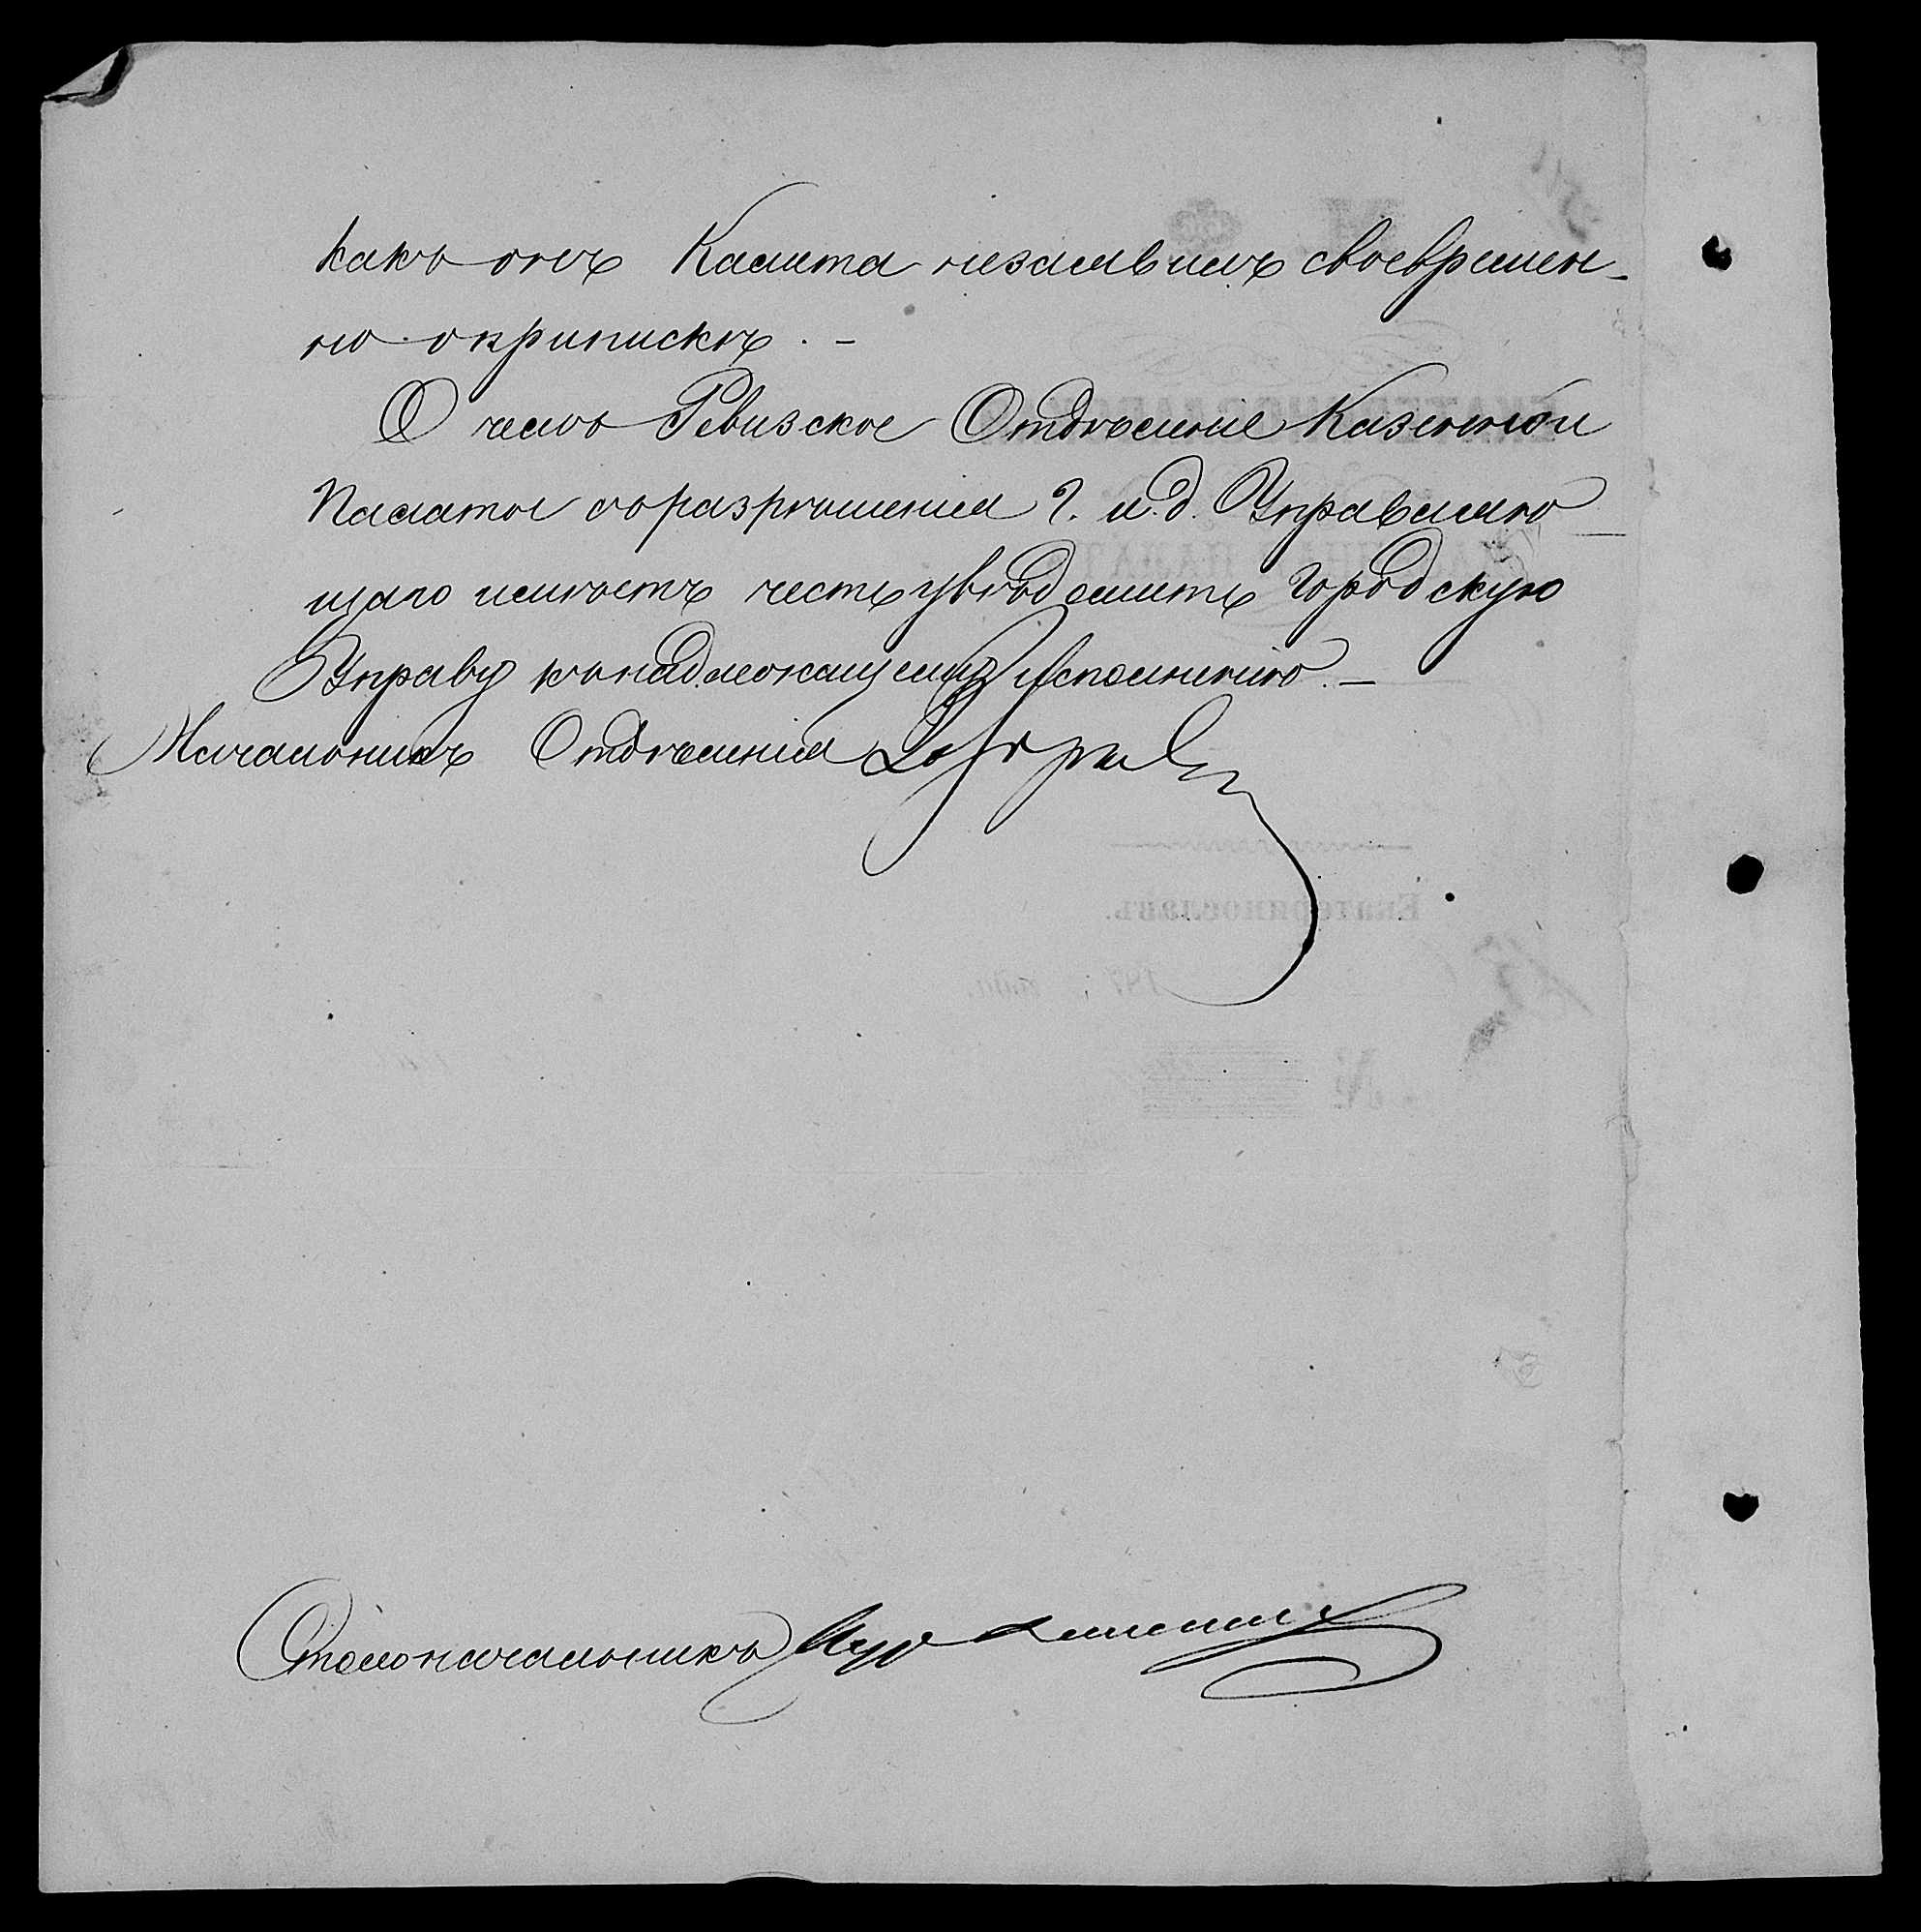 какъ онъ Калита незаявилъ своевремен-
но о припискѣ. -
О чемъ Ревизское Отдѣленіе Казенной
Палаты съ разрѣшенія Г. и. д. Управляю-
щаго имѣетъ честь увѣдомить Городскую
Управу къ надлежащему исполненію. -
Начальникъ Отдѣленія
Столоначальникъ
Екатеринославъ.
187 года.
№